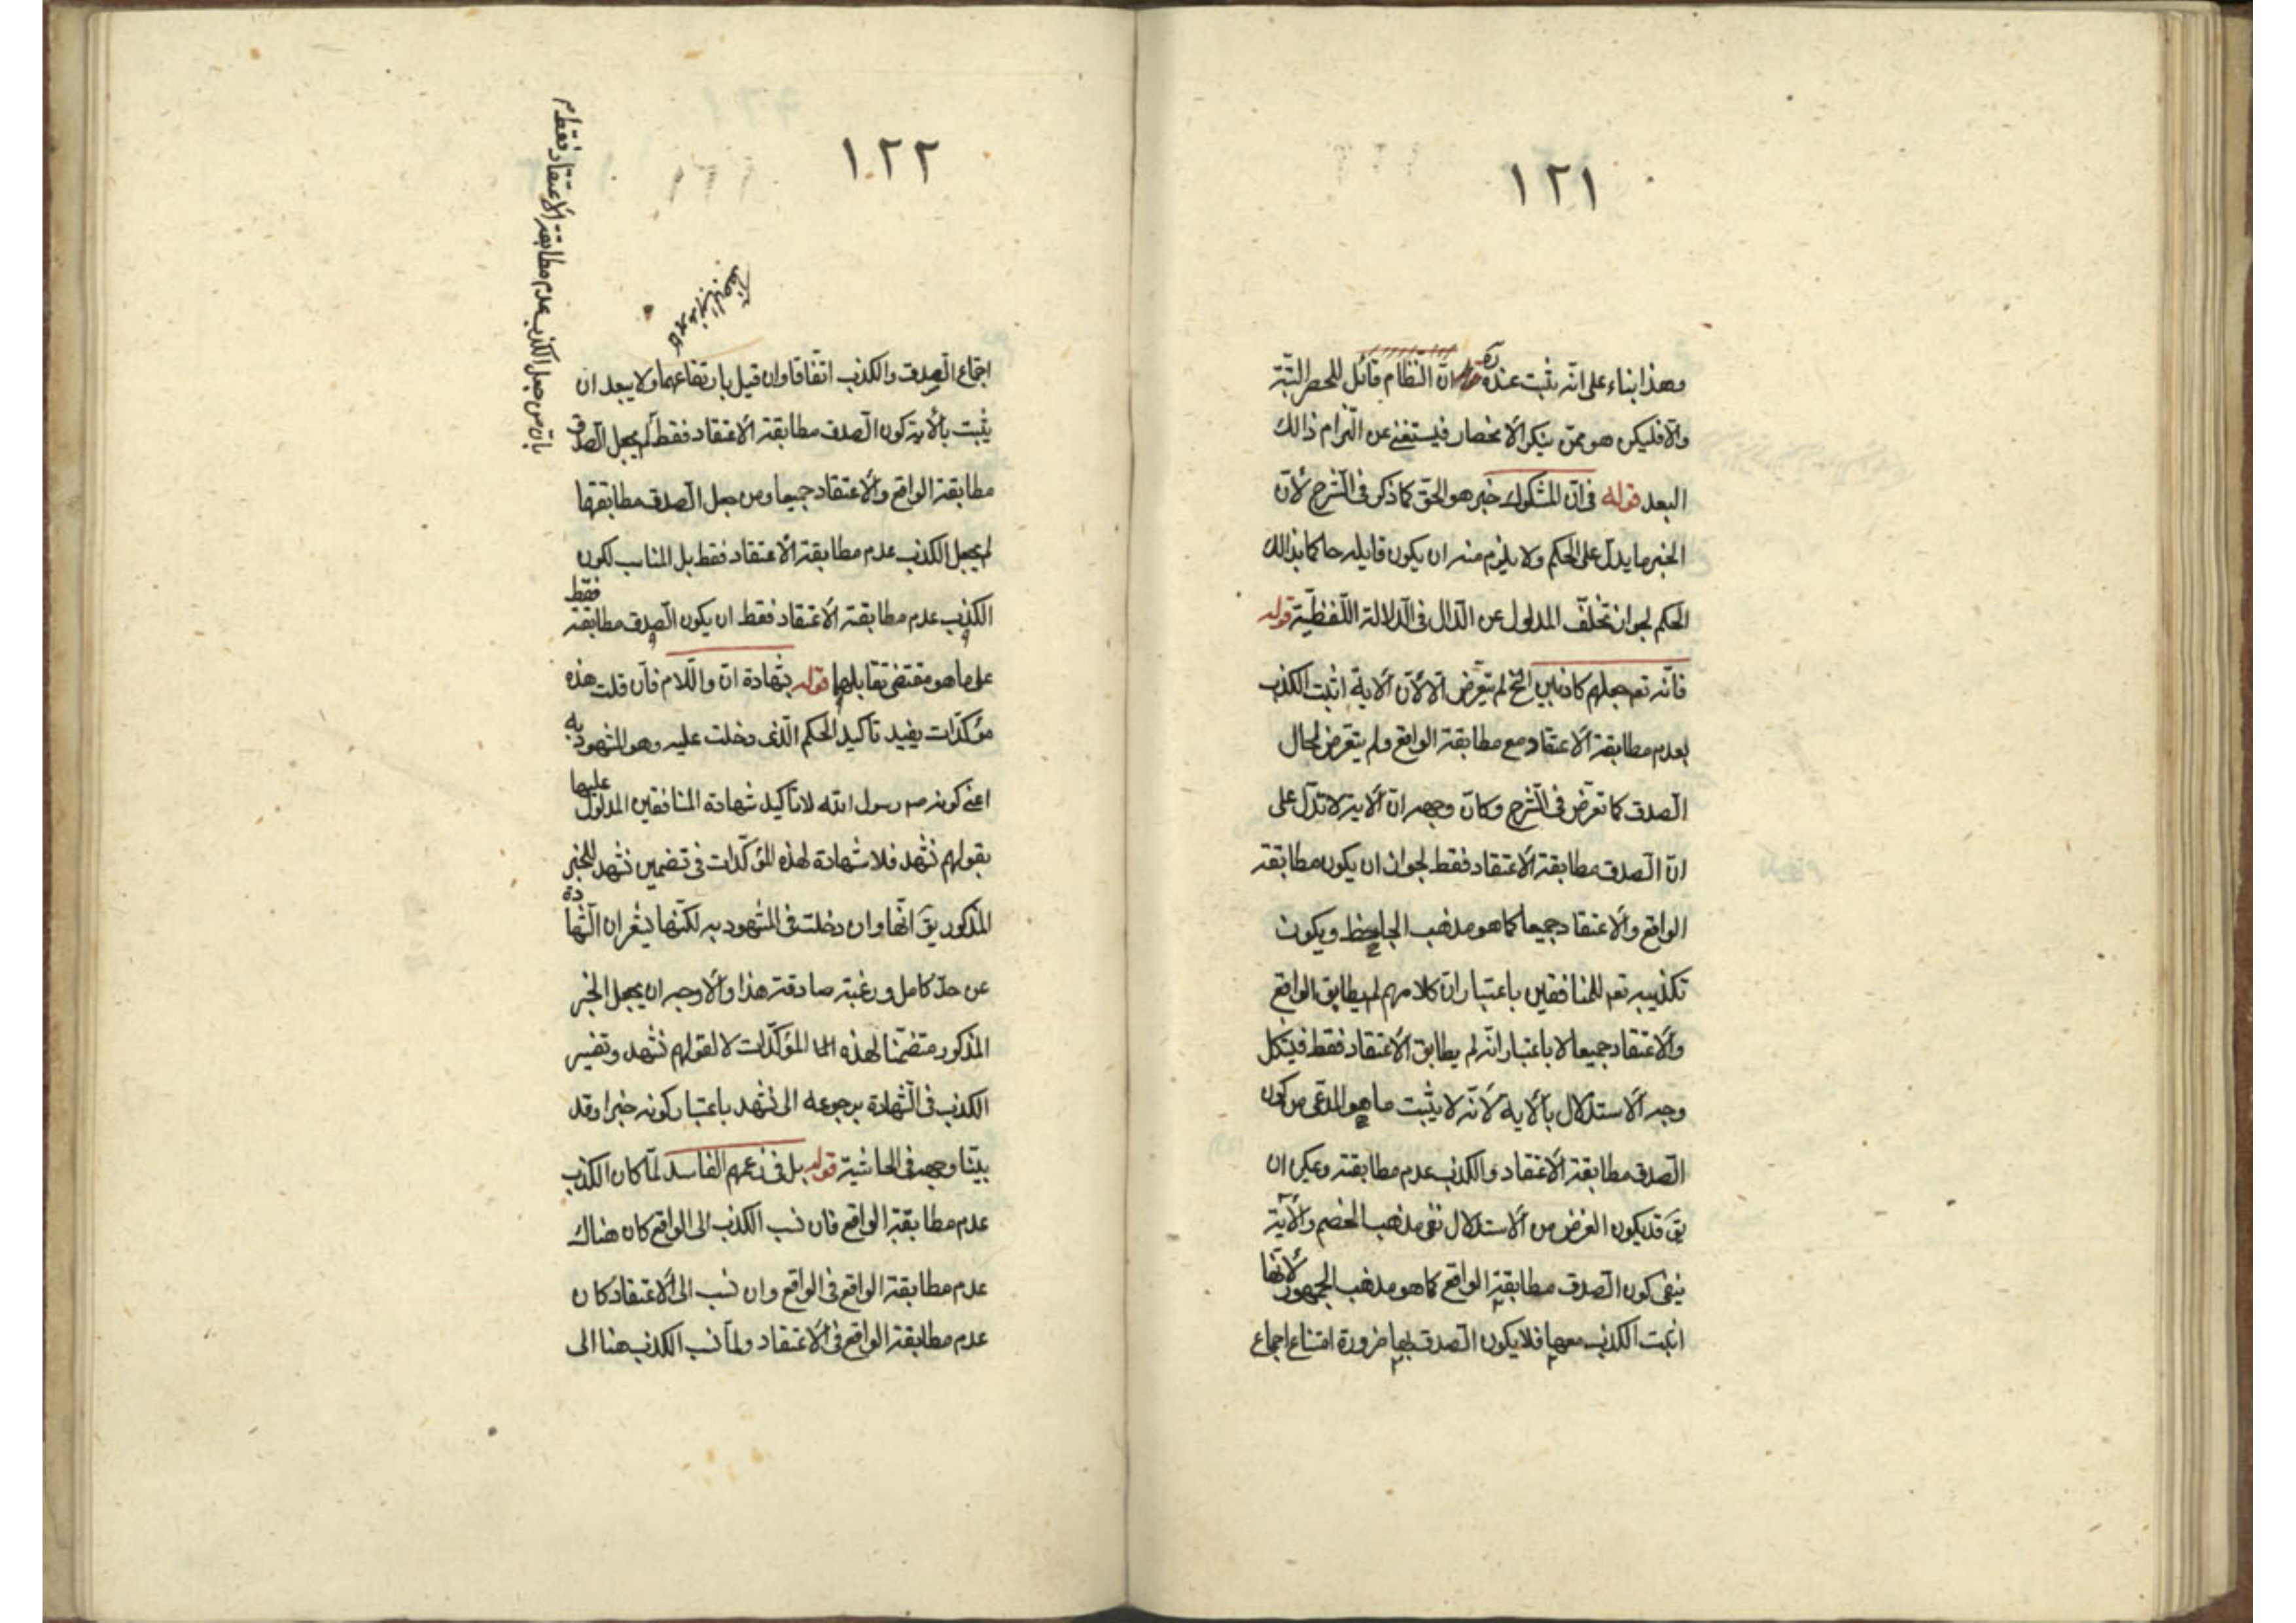 ١٢١
وهذا بناء على انّه يثبت عنده انّ النظّام قائل للحصر البتّة
والّا فليكن هو ممّن ينكر الانحصار فيستغنى عن التزام ذالك
البعد قوله فى انّ المشكوك خبر هو الحقّ كما ذكر فى الشرح لانّ
الخبر ما يدلّ على الحكم ولا يلزم منه ان يكون قايله حاكما بذالك
الحكم لجواز تخلّف المدلول عن الدّال فى الدّلالة اللّفظيّة قوله
فانّه تعم جعلهم كاذبين الخ لم يتعرّض الا لانّ الاية اثبت الكذب
بعدم مطابقة الاعتقاد مع مطابقة الواقع ولم يتعرض لحال
الصّدق كما تعرّض فى الشّرح وكانّ وجهه انّ الاية لا تدلّ على
انّ الصّدق مطابقة الاعتقاد فقط لجواز ان يكون مطابقة
الواقع والاعتقاد جميعا كما هو مذهب الجاحظ ويكون
تكذيبه تعم للمنافقين باعتبار انّ كلامهم لم يطابق الواقع
والاعتقاد جميعا لا باعتبار انّه لم يطابق الاعتقاد فقط فيشكل
وجه الاستدلال بالاية لانّه لا يثبت ما هو المدّعى من كون
الصّدق مطابقة الاعتقاد والكذب عدم مطابقته ويمكن ان
يق قد يكون الغرض من الاستدلال نفى مذهب الخصم والاية
ينفى كون الصّدق مطابقة الواقع كما هو مذهب الجمهور لانّها
اثبت الكذب معها فلا يكون الصّدق بها ضرورة امتناع اجماع
١٢٢
اجتماع الصّدق والكذب اتّفاقا وان قيل بارتفاعهما ولا يبعد ان
يثبت بالاية كون الصّدق مطابقة الاعتقاد فقط لم يجعل الصّدق
مطابقة الواقع والاعتقاد جميعا ومن جعل الصّدق مطابقتها
لم يجعل الكذب عدم مطابقة الاعتقاد فقط بل المناسب لكون
الكذب عدم مطابقة الاعتقاد فقط ان يكون الصّدق مطابقة فقط
على ما هو مقتضى تقابلهما قوله بشهادة انّ واللّام فان قلت هذه
مؤكّدات يفيد تاكيد الحكم الّذى دخلت عليه وهو المشهود به
اعنى كونه ص رسول الله لا تاكيد شهادة المنافقين المدلول عليها
بقولهم نشهد فلا شهادة لهذه المؤكّدات فى تضمين نشهد للخبر
المذكور يق انّها وان دخلت فى المشهود به لكنّها يشعر ان الشّهادة
عن حدّ كامل ورغبة صادقة هذا والاوجه ان يجعل الخبر
المذكور متضمّنا لهذه المؤكّدات لا لقولهم نشهد وتفسير
الكذب فى الشّهادة برجوعه الى نشهد باعتبار كونه خبرا وقد
بيّنا وجهه فى الحاشية قوله بل فى زعمهم الفاسد لمّا كان الكذب
عدم مطابقة الواقع فان نسب الكذب الى الواقع كان هناك
عدم مطابقة الواقع فى الواقع وان نسب الى الاعتقاد كان
عدم مطابقة الواقع فى الاعتقاد ولمّا نسب الكذب هنا الى
بانّ من جعل الكذب عدم مطابقة الاعتقاد فقط م